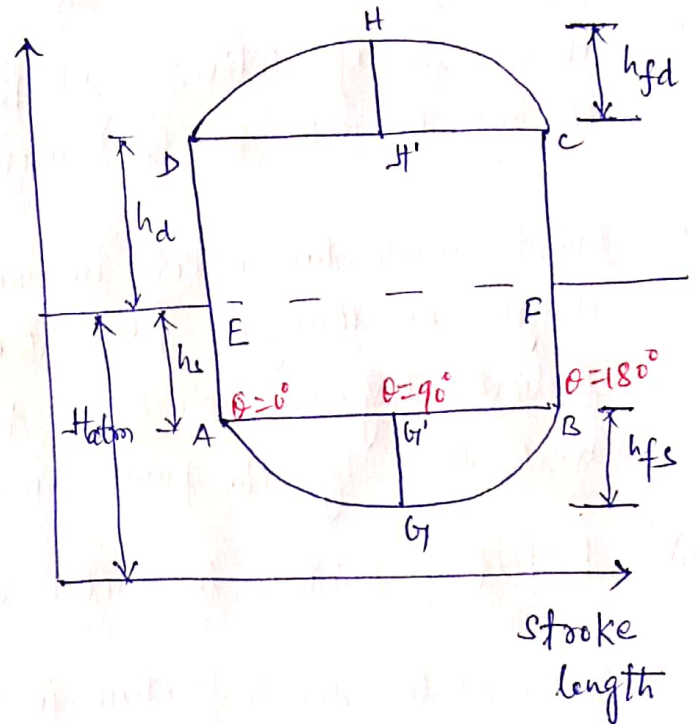 H
hfd
D
H'
C
hd
E
F
hs
θ=0°
θ=90°
θ=180°
Hatm
A
G'
B
hfs
G
stroke
length